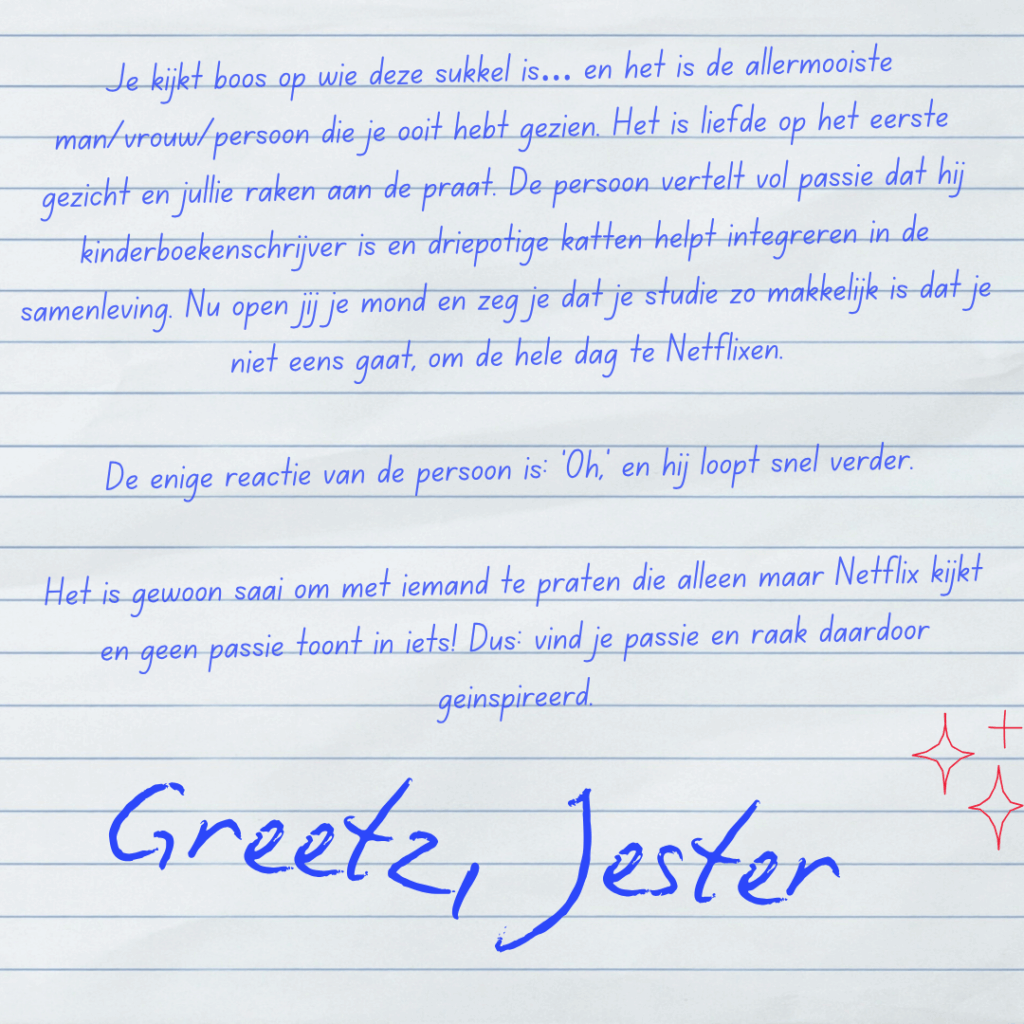 Je kijkt boos op wie deze sukkel is... en het is de allermooiste
man/vrouw/persoon die je ooit hebt gezien. Het is liefde op het eerste
gezicht en jullie raken aan de praat. De persoon vertelt vol passie dat hij
kinderboekenschrijver is en driepotige katten helpt integreren in de
samenleving. Nu open jij je mond en zeg je dat je studie zo makkelijk is dat je
niet eens gaat, om de hele dag te Netflixen.
De enige reactie van de persoon is: 'Oh,' en hij loopt snel verder.
Het is gewoon saai om met iemand te praten die alleen maar Netflix kijkt
en geen passie toont in iets! Dus: vind je passie en raak daardoor
geinspireerd.
Greetz, Jester